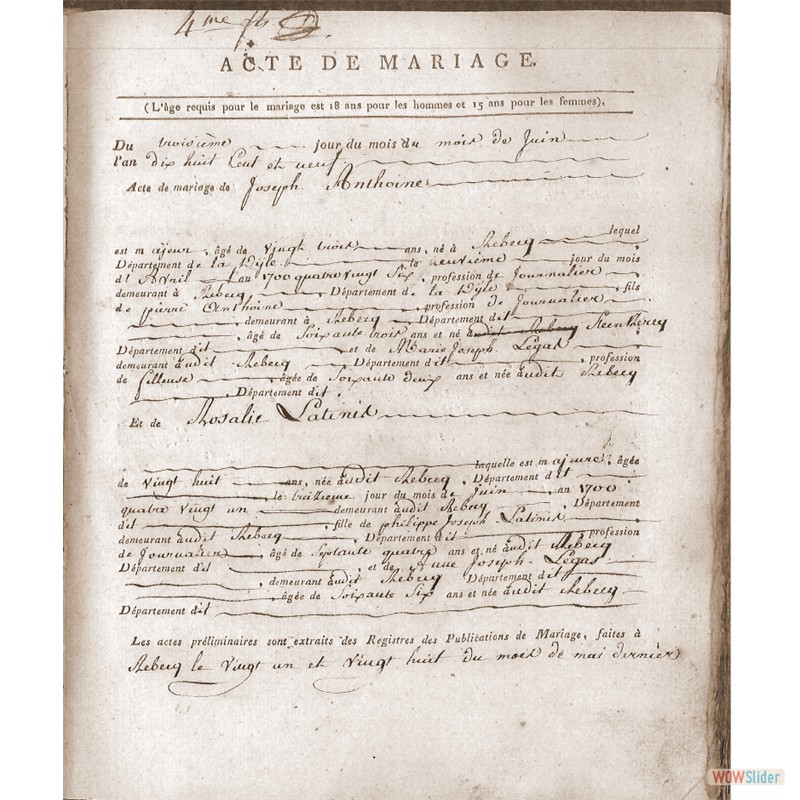 4me
ACTE DE MARIAGE.
(L'âge requis pour le mariage est 18 ans pour les hommes et 15 ans pour les femmes).
Du troisième jour du mois du mois de Juin
l'an dix huit Cent et neuf
Acte de mariage de Joseph Anthoine
lequel
est majeur, âgé de Vingt trois ans, né à Rebecq
Département de la Dÿle le neuvième jour du mois
d'Avril au 1700 quatre vingt Six, profession de Journalier
demeurant à Rebecq, Département de la Dÿle, fils
de pierre Anthoine, profession de Journalier
demeurant à Rebecq Département dit
, âgé de Soixante trois ans et né audit Rebecq Steenkercq
Département dit et de Marie Joseph Légat
demeurant audit Rebecq Département dit, profession
de filleuse, âgée de Soixante deux ans et née audit Rebecq
Département dit.
Et de Rosalie Latinis
laquelle est majeure, âgée
de Vingt huit ans, née audit Rebecq, Département dit
le treizième jour du mois de Juin an 1700
quatre Vingt un demeurant audit Rebecq, Département
dit, fille de philippe Joseph Latinis
demeurant audit Rebecq, Département dit profession
de Journalier, âgé de Septante quatre ans et né audit Rebecq
Département dit et de Joseph Légat
, demeurant audit Rebecq Département dit
, âgée de Soixante Six ans et née audit Rebecq
Département dit
Les actes préliminaires sont extraits des Registres des Publications de Mariage, faites à
Rebecq le Vingt un et Vingt huit du mois de mai dernier
WOWSlider